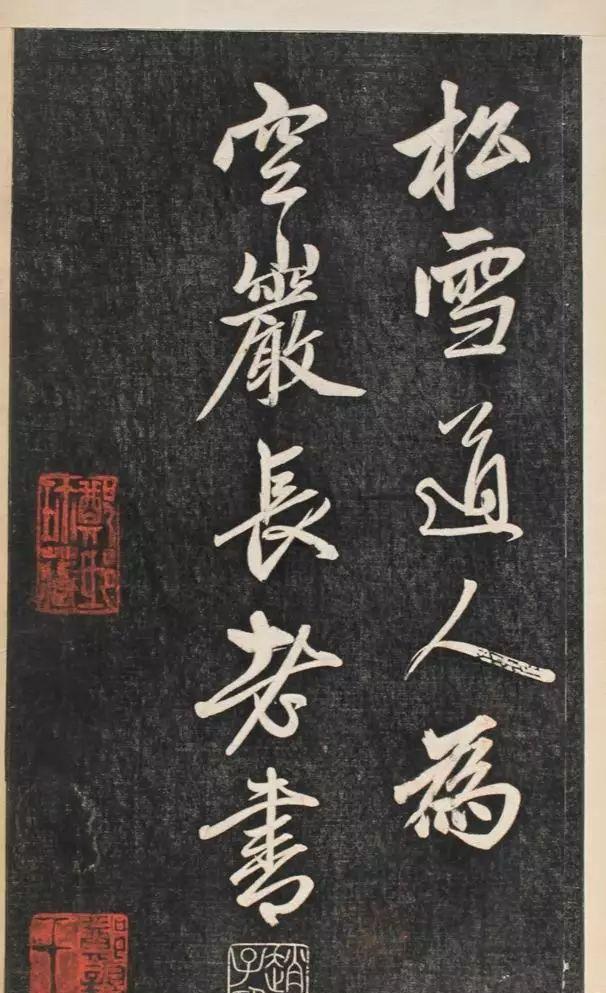 松雪道人為
空巖長老書